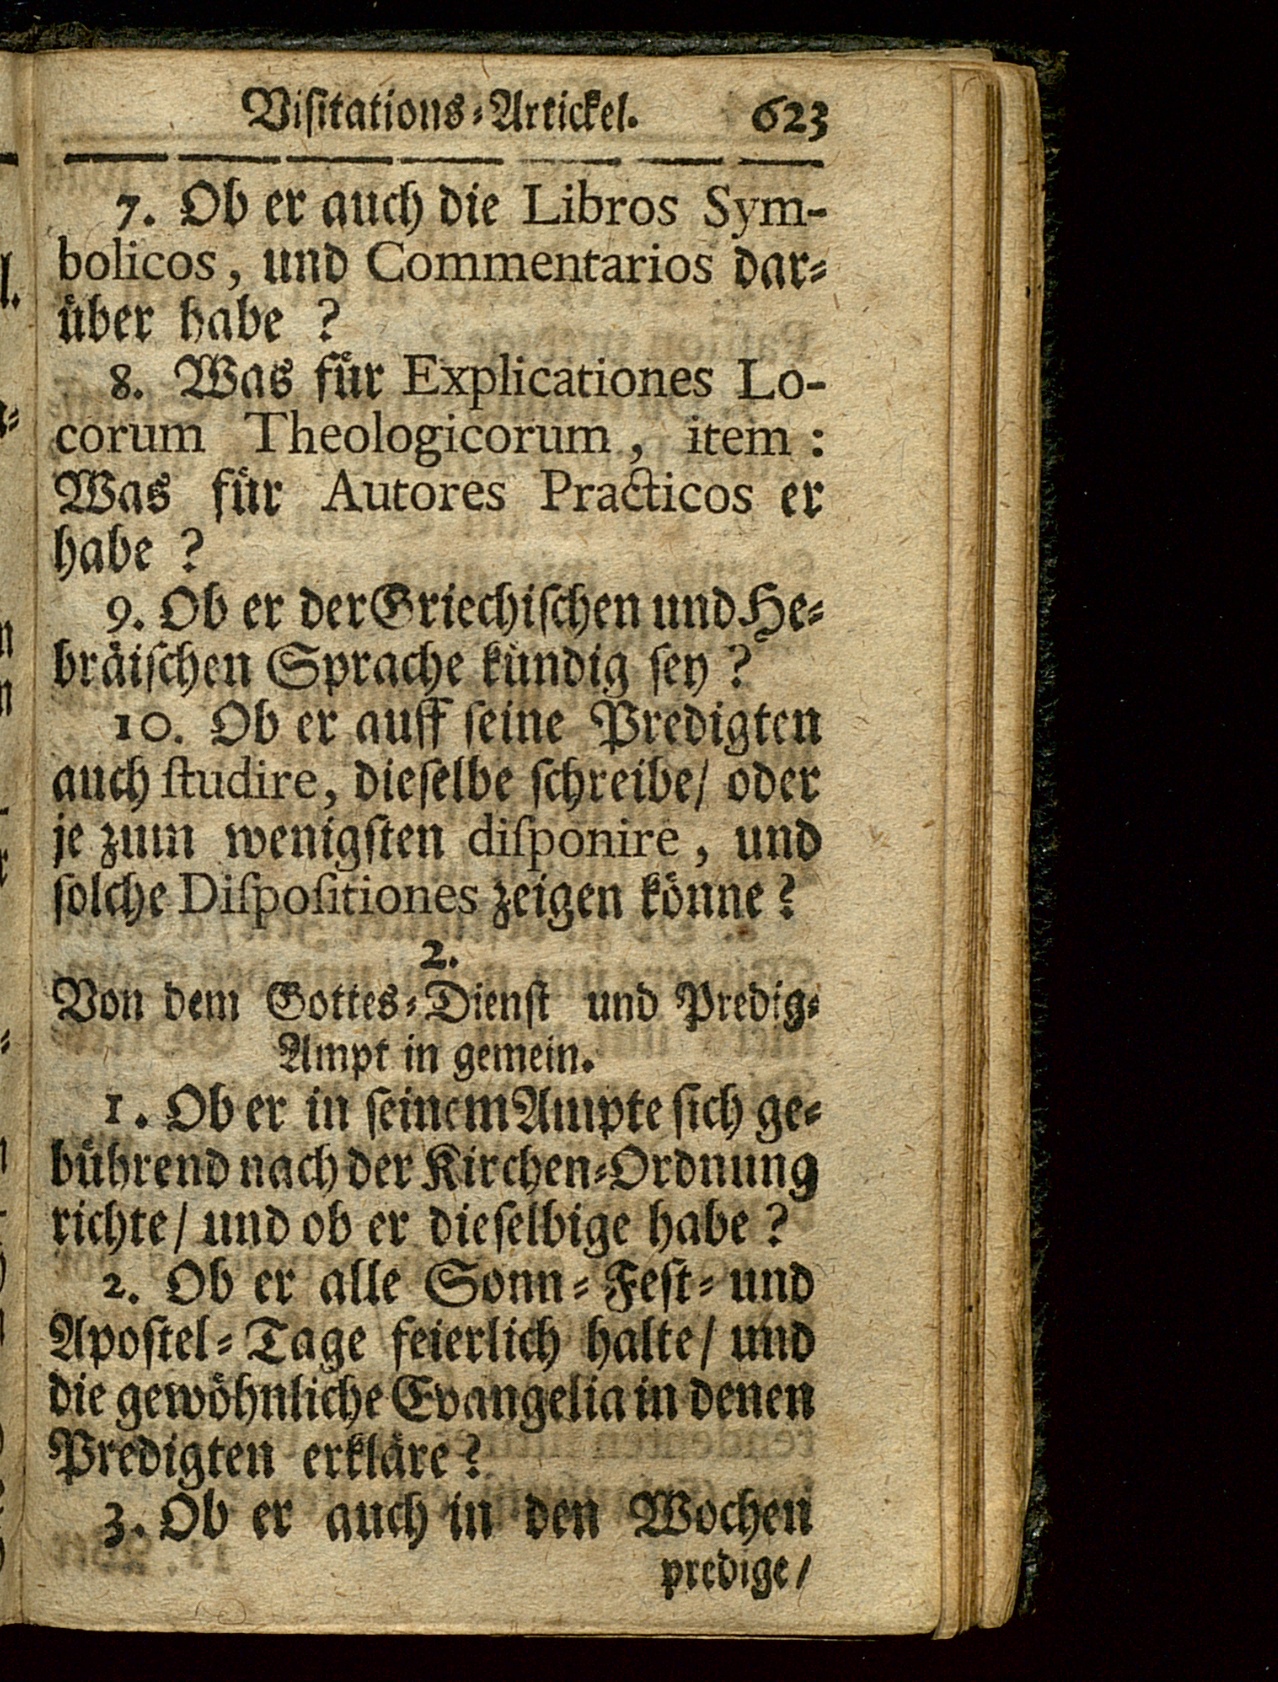 Viſitations-Artickel. 623
7. Ob er auch die Libros Sym-
bolicos, und Commentarios dar-
uͤber habe ?
8. Was fuͤr Explicationes Lo-
corum Theologicorum, item :
Was fuͤr Autores Practicos er
habe ?
9. Ob er der Griechiſchen und He-
braͤiſchen Sprache kuͤndig ſey ?
10. Ob er auff ſeine Predigten
auch ſtudire, dieſelbe ſchreibe/ oder
je zum wenigſten diſponire, und
ſolche Diſpoſitiones zeigen koͤnne ?
2.
Von dem Gottes-Dienſt und Predig-
Ampt in gemein.
1. Ob er in ſeinem Ampte ſich ge-
buͤhrend nach der Kirchen-Ordnung
richte/ und ob er dieſelbige habe ?
2. Ob er alle Sonn- Feſt- und
Apoſtel-Tage feierlich halte/ und
die gewoͤhnliche Evangelia in denen
Predigten erklaͤre ?
3. Ob er auch in den Wochen
predige/